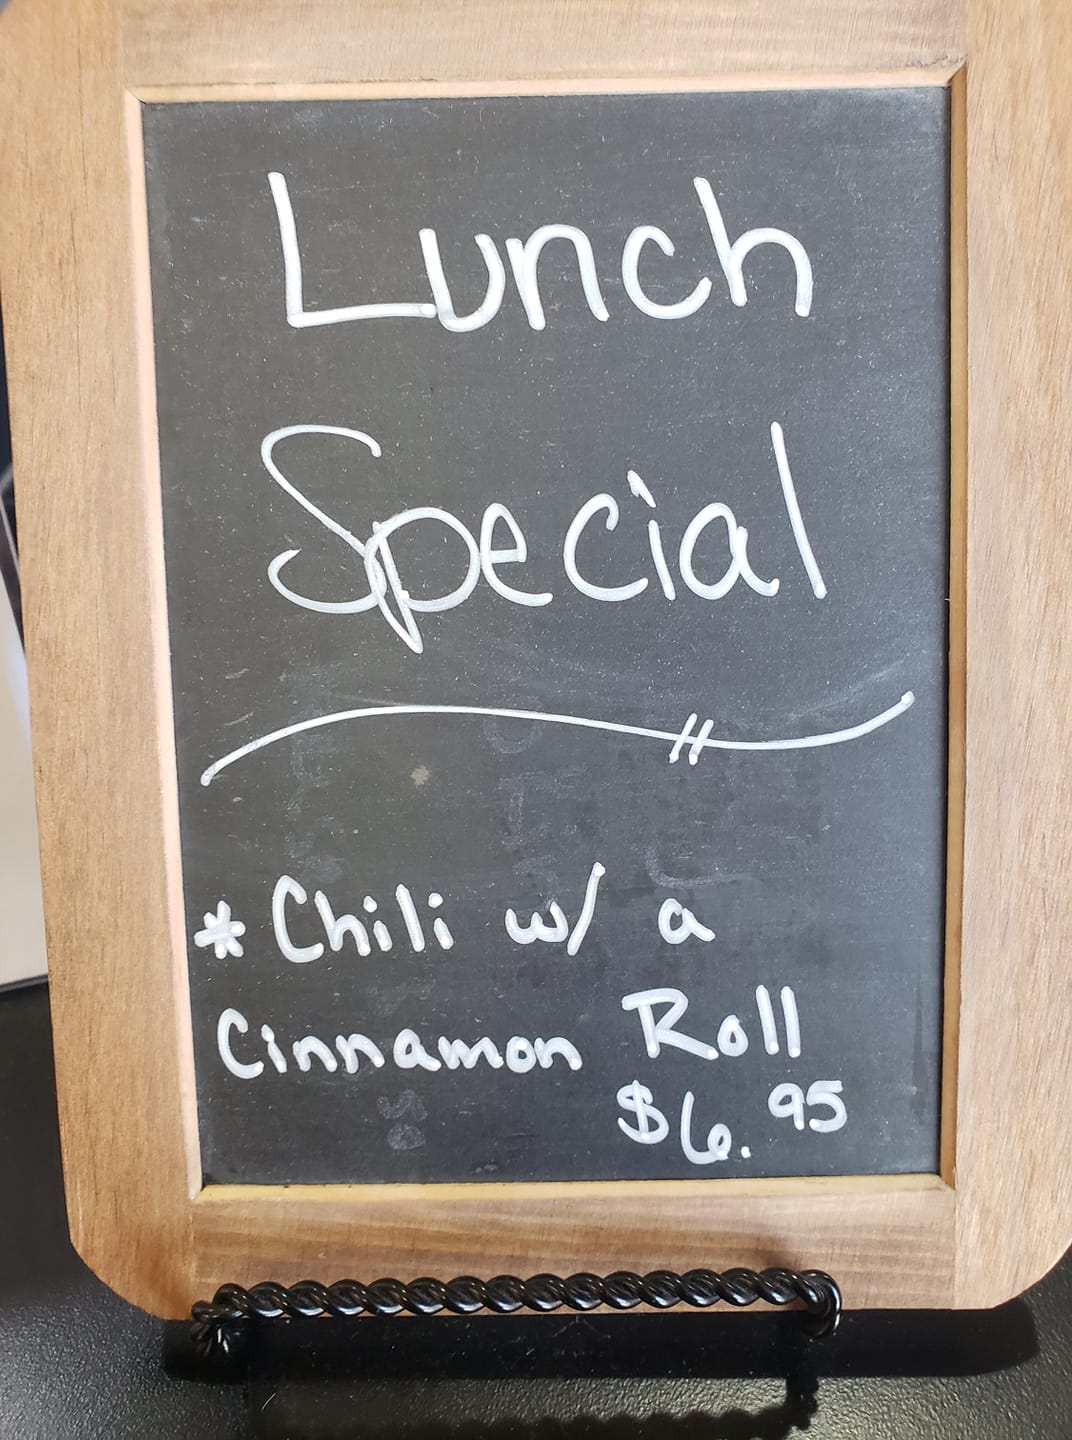 Lunch
Special
* Chili w/ a
Cinnamon Roll
$6.95